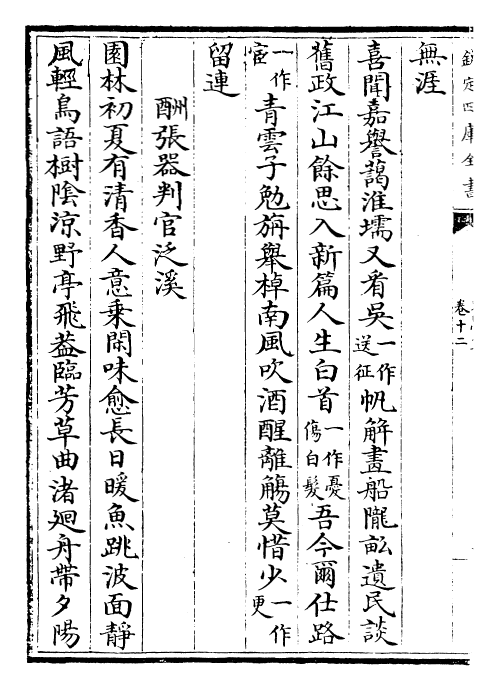 欽定四庫全書
卷十二
無涯
喜聞嘉譽藹淮壖又看吳一作送征帆解畫船隴畝遺民談
舊政江山餘思入新篇人生白首一作憂傷白髮吾今爾仕路
一作宦青雲子勉旃舉棹南風吹酒醒離觴莫惜少一作更
留連
酬張器判官泛溪
園林初夏有清香人意乘閑味愈長日暖魚跳波面靜
風輕鳥語樹陰涼野亭飛蓋臨芳草曲渚廻舟帶夕陽